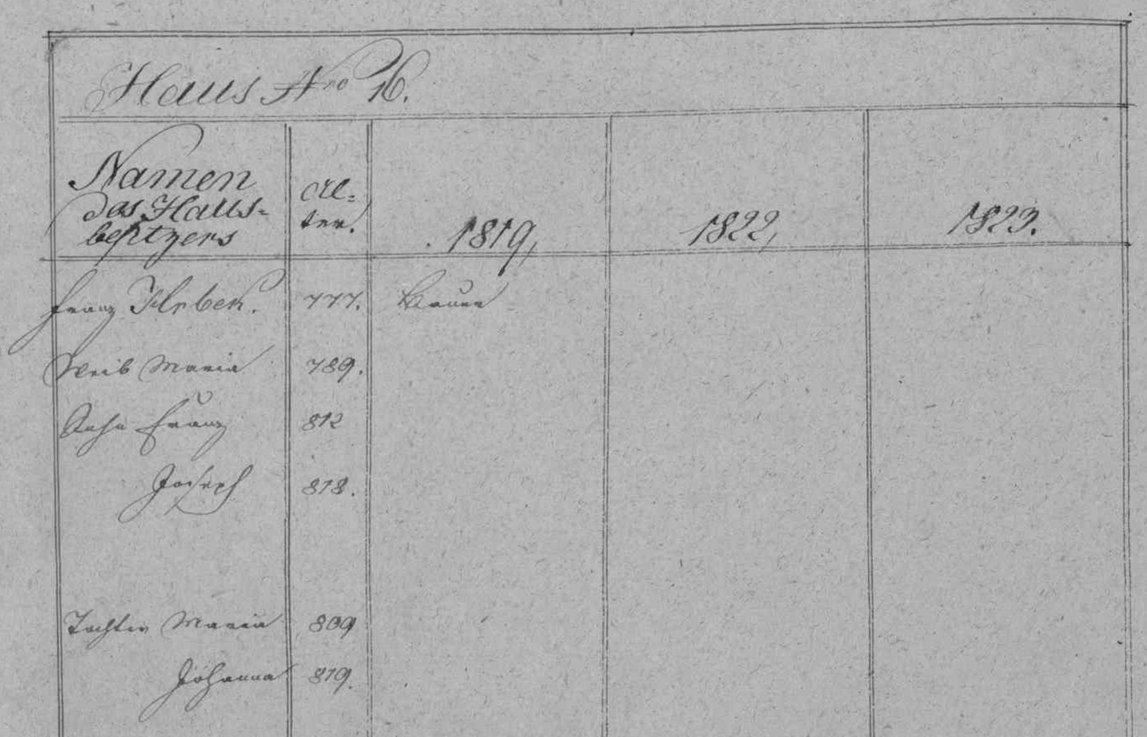 Haus Nro 16.
Namen des Haus=besitzers
Al=ter.
1819,
1822,
1823.
Franz Hrbek. 777. Bauer
Weib Maria 789.
Sohn Franz 812
Joseph 818.
Tochter Maria 809
Johanna 819.